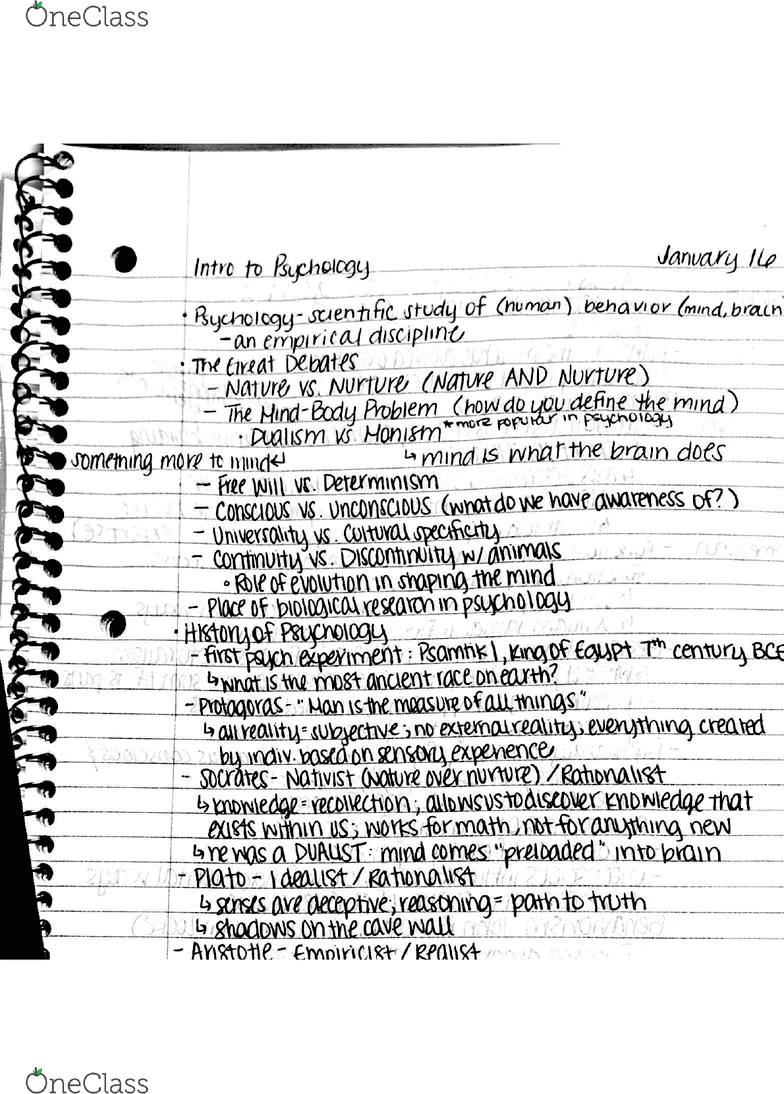 OneClass
Intro to Psychology
January 16
• Psychology - scientific study of (human) behavior (mind, brain
- an empirical discipline
• The Great Debates
- Nature vs. Nurture (Nature AND Nurture)
- The Mind-Body Problem (how do you define the mind)
• Dualism vs Monism *more popular in psychology
something more to mind ↵ ↳ mind is what the brain does
- Free Will vs. Determinism
- Conscious vs. Unconscious (what do we have awareness of?)
- Universality vs. Cultural specificity
- Continuity vs. Discontinuity w/ animals
• Role of evolution in shaping the mind
- Place of biological research in psychology
• History of Psychology
- First psych experiment: Psamtik I, King of Egypt 7th century BCE
↳ what is the most ancient race on earth?
- Protagoras - "Man is the measure of all things"
↳ all reality = subjective; no external reality; everything created
by indiv. based on sensory experience
- Socrates - Nativist (Nature over nurture) / Rationalist
↳ knowledge = recollection; allows us to discover knowledge that
exists within us; works for math, not for anything new
↳ he was a DUALIST: mind comes "preloaded" into brain
- Plato - Idealist / Rationalist
↳ senses are deceptive; reasoning = path to truth
↳ shadows on the cave wall
- Aristotle - Empiricist / Realist
OneClass